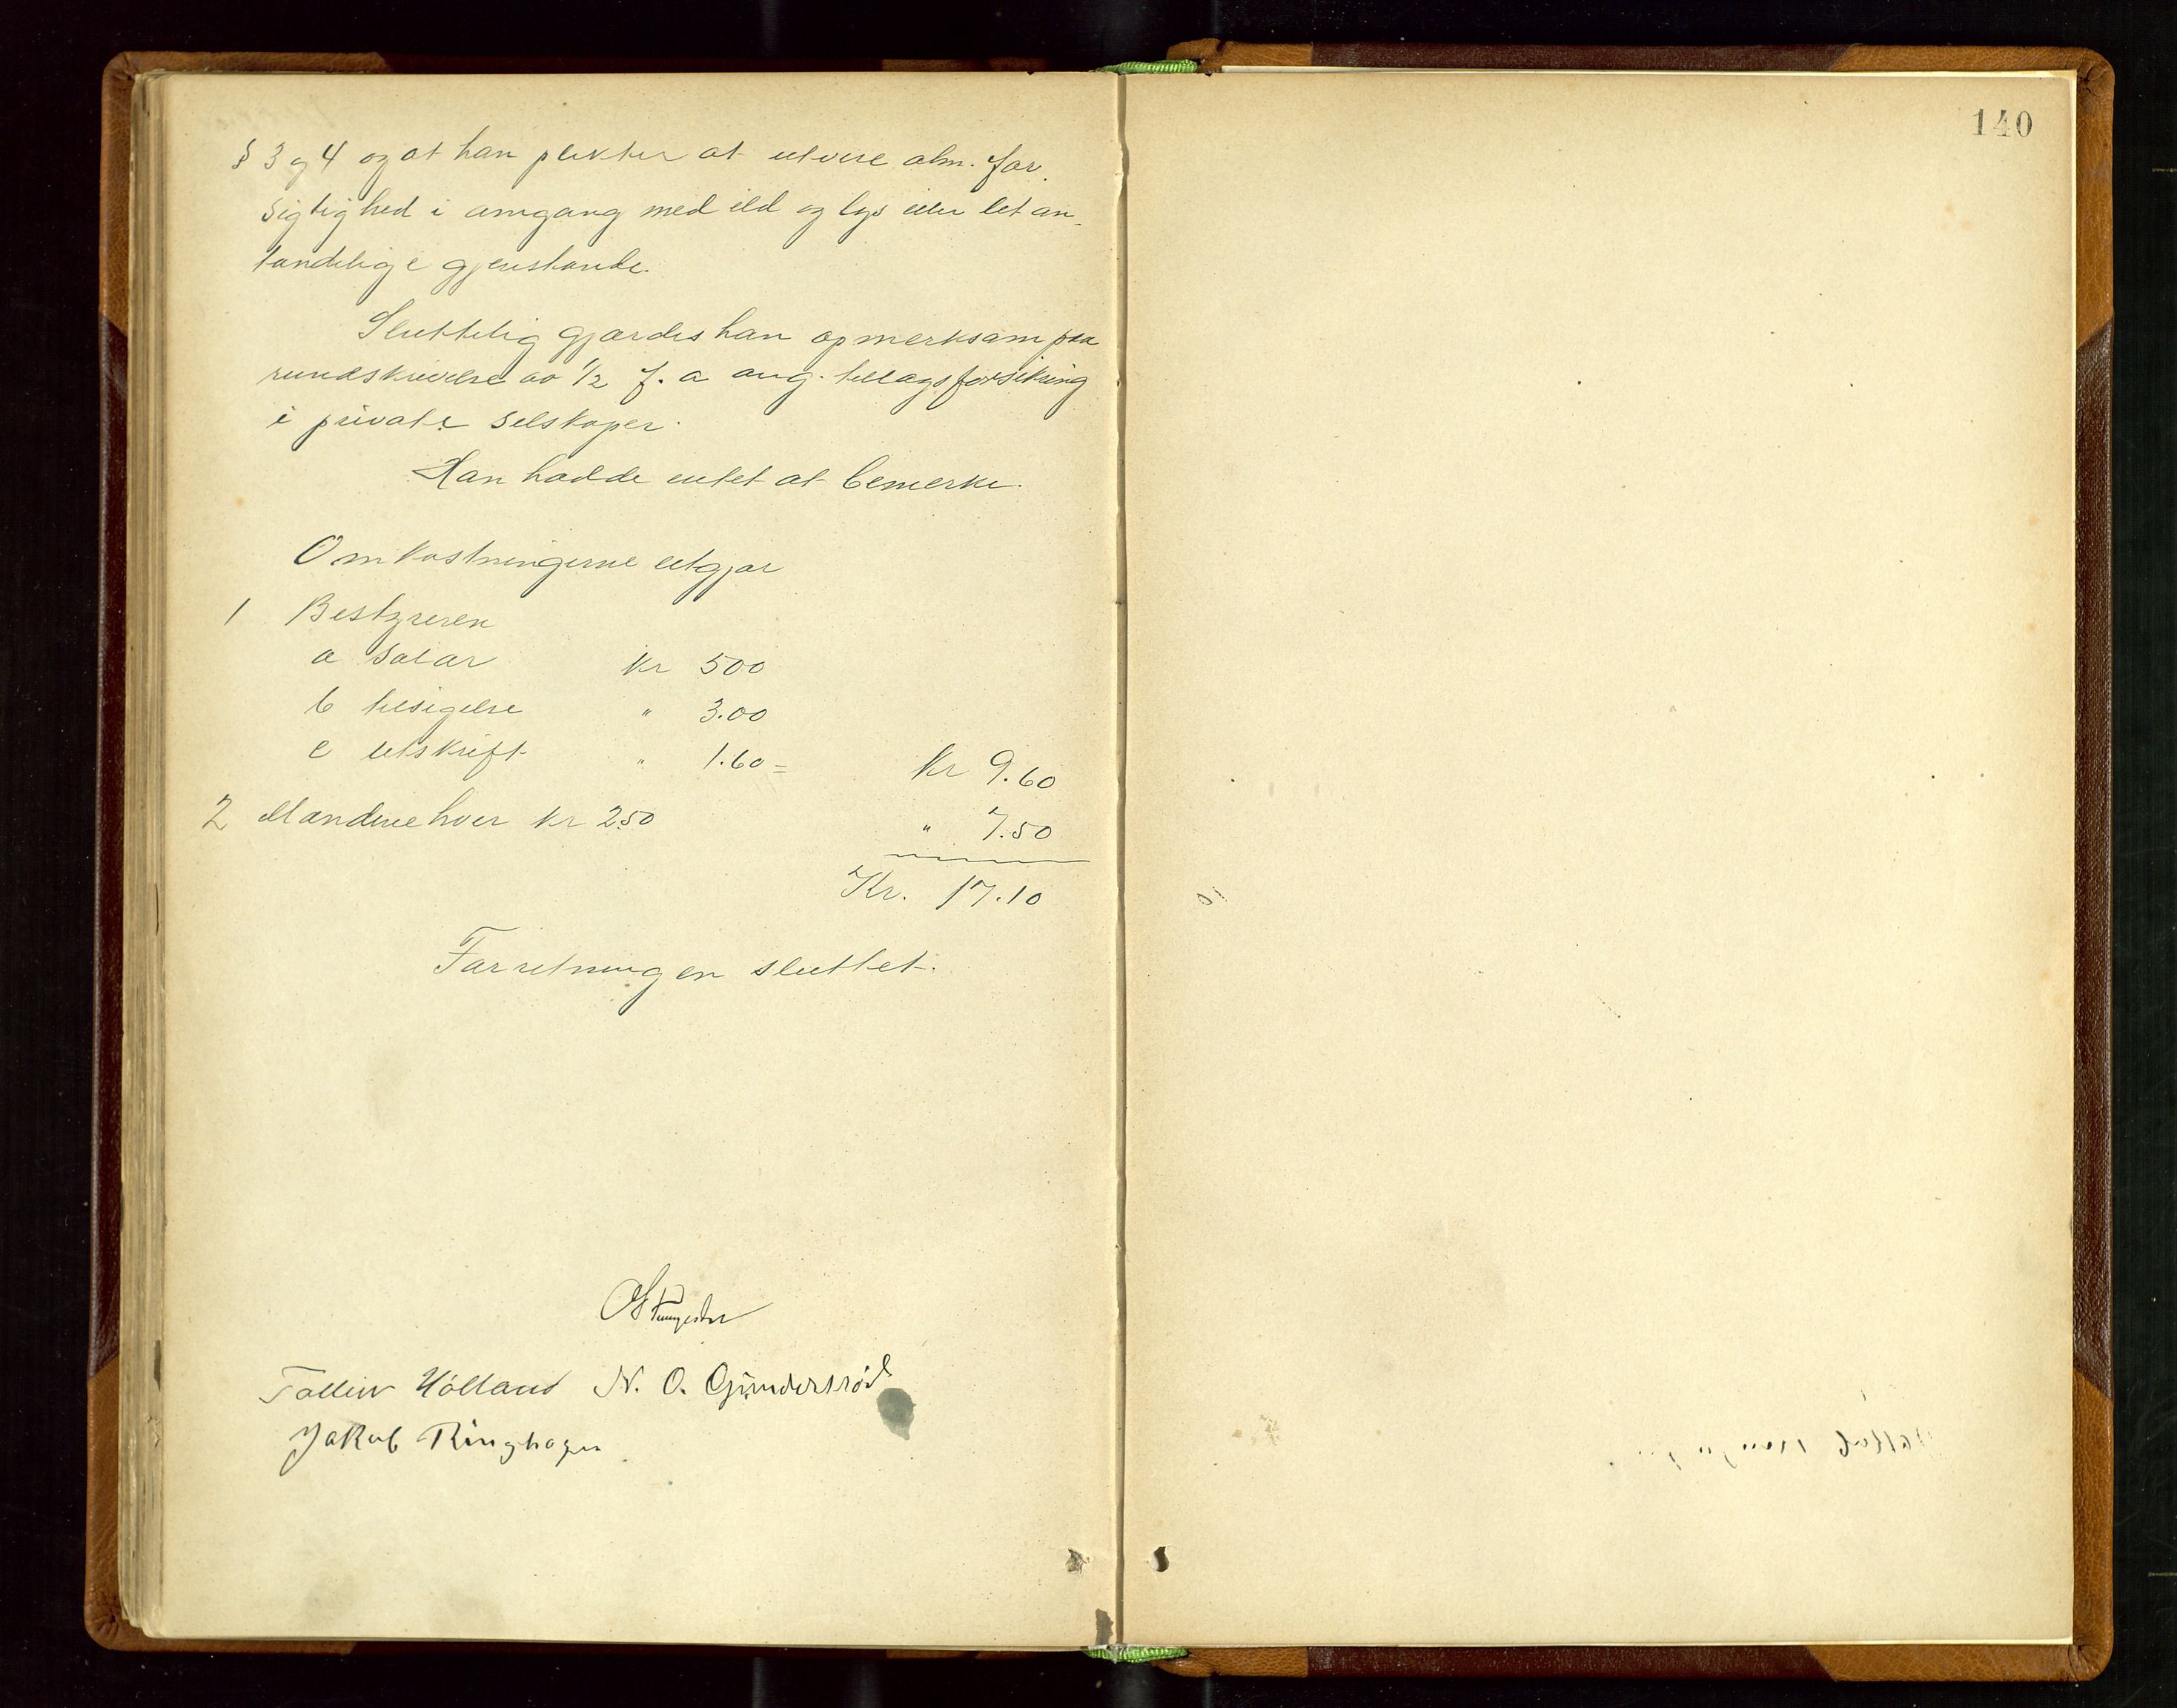 140
§ 3 og 4 og at han plikter at utvise alm. for.
sigtighed i omgang med ild og lys eller let an-
tændelige gjenstande.
Sluttelig gjordes han opmerksam paa
rundskrivelse av 1/2 f. a ang. tillægsforsikring
i private selskaper.
Han hadde intet at bemerke.
Omkostningerne utgjør
1 Bestyreren
a Salær kr 500
b besigelse " 3.00
c utskrift " 1.60 = kr 9.60
2 Mændene hver kr 2.50 " 7.50
Kr. 17.10
Forretningen sluttet.
Tollew Hölland N. O. Gundersröd
Jakob Ringhagen